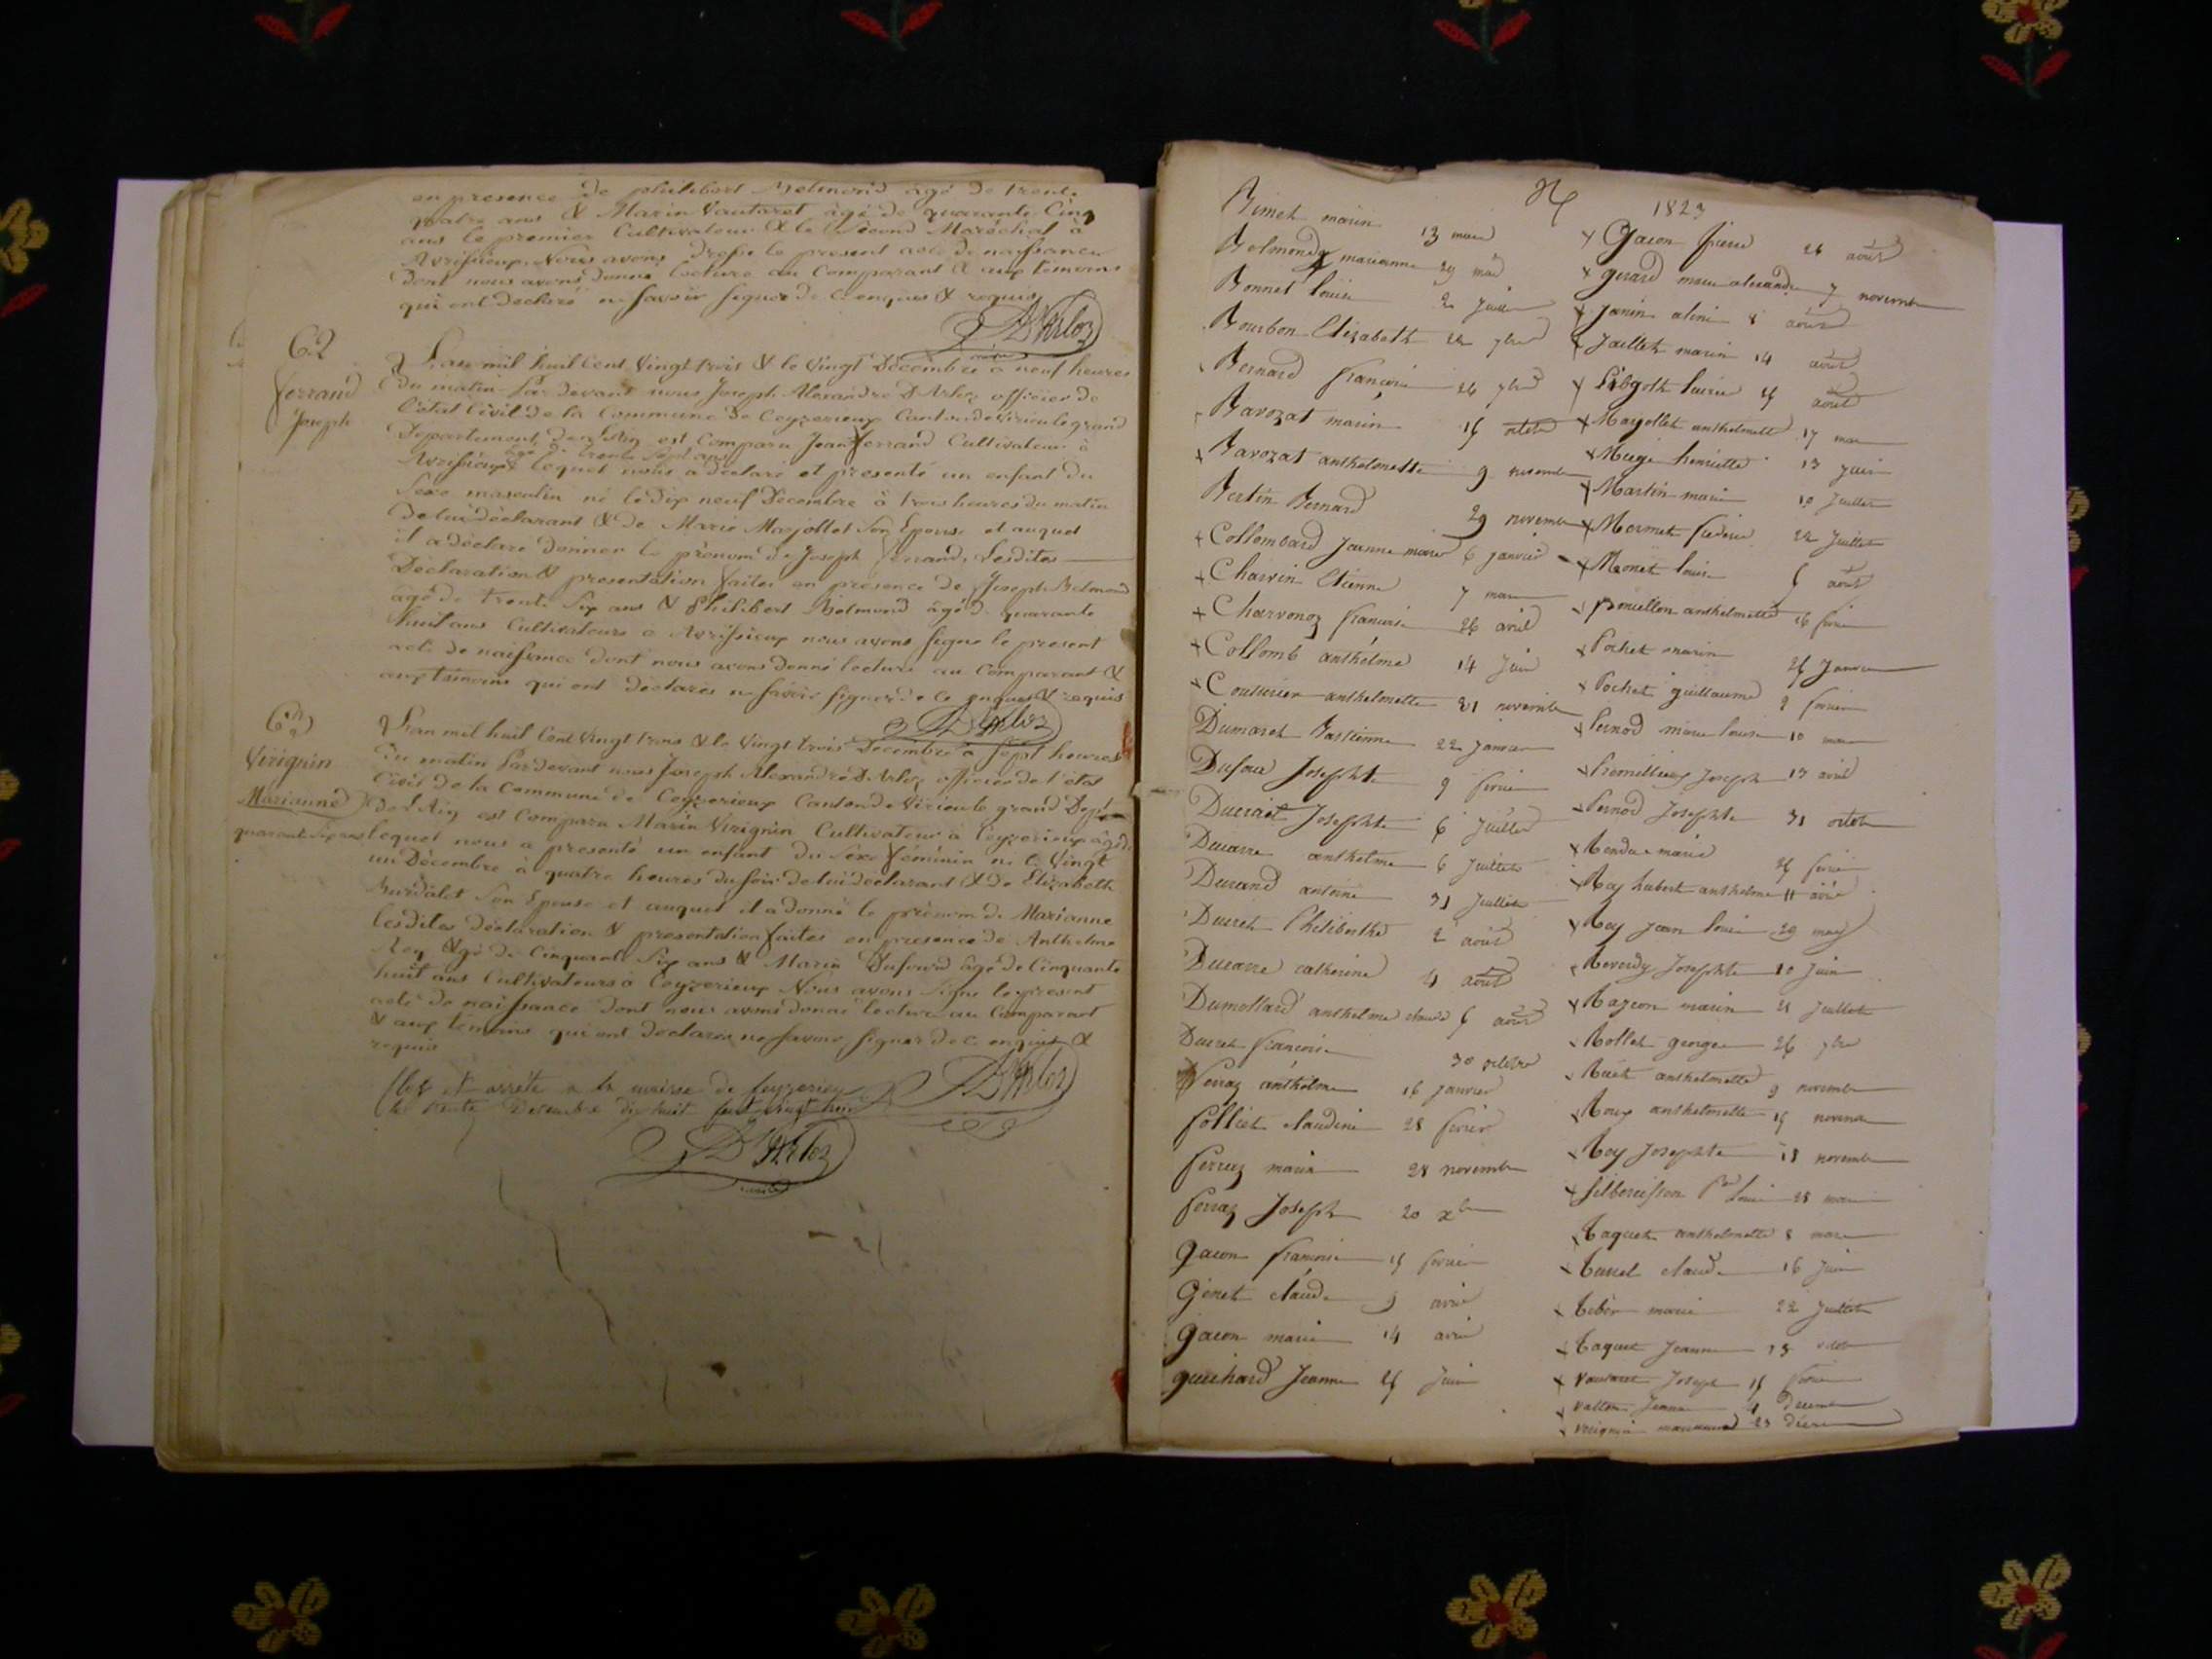 en presence de philibert Belmond agé de trente
quatre ans & Marin Vautaret agé de quarante Cinq
ans le premier Cultivateur & le Second Maréchal à
Avrissieux Nous avons dressé le present acte de naissance
dont nous avons donné lecture au Comparant & aux temoins
qui ont declaré ne savoir signer de ce enquis & requis
D'Arloz
62
ferrand
Joseph
L'an mil huit cent Vingt trois & le Vingt Décembre a neuf heures
du matin Par devant nous Joseph Alexandre D'Arloz officier de
l'état Civil de la Commune de Ceyzerieux Canton de virieu le grand
Departement de l'Ain est Comparu Jean ferrand Cultivateur à
Avrissieux agé de trente sept ans lequel nous a déclaré et presenté un enfant du
Sexe masculin né le dix neuf Décembre à trois heures du matin
de lui déclarant & de Marie Marjollet Son Epouse et auquel
il a déclaré donner le prénom de Joseph ferrand. Lesdites
Déclaration & presentation faites en présence de Joseph Belmond
agé de trente Six ans & Philibert Belmond agé de quarante
huit ans Cultivateurs a Avrissieux nous avons signé le present
acte de naissance dont nous avons donné lecture au Comparant &
aux témoins qui ont déclarés ne savoir signer de ce enquis & requis
D'Arloz
63
Virignin
Marianne
quarante six ans
L'an mil huit Cent Vingt trois & le Vingt trois Decembre a sept heures
du matin Par devant nous Joseph Alexandre D'Arloz officier de l'état
Civil de la Commune de Ceyzerieux Canton de Virieu le grand Dept
de l'Ain est Comparu Marin Virignin Cultivateur à Ceyzerieux agé de
lequel nous a presenté un enfant du Sexe féminin né le Vingt
un Décembre à quatre heures du soir de lui déclarant & de Elizabeth
Burdalet Son Epouse et auquel il a donné le prénom de Marianne
lesdites déclaration & presentation faites en presence de Anthelme
Rey agé de Cinquante Six ans & Marin Dufourd agé de Cinquante
huit ans Cultivateurs à Ceyzerieux Nous avons signé le present
acte de naissance dont nous avons donné lecture au Comparant
& aux témoins qui ont déclarés ne savoir signer de ce enquis &
requis
D'Arloz
Clos et arrêté a la mairie de Ceyzerieu
le trente Decembre dix huit cent vingt trois
D'Arloz
N 1823
Bimet marin 13 mars
Belmond marianne 29 mai
Bonnet louise 2 Juillet
Bourbon Elizabeth 22 7bre
Bernard francoise 26 7bre
Bavozat marin 15 octobre
Bavozat anthelmette 9 novembre
Bertin Bernard 29 novembre
Collombard Jeanne marie 6 janvier
Charvin Etienne 7 mars
Charvonoz francoise 26 avril
Collomb anthelme 14 Juin
Couturier anthelmette 21 novembre
Dumaret Bastienne 22 Janvier
Dufour Josephte 9 fevrier
Ducrait Josephte 6 Juillet
Ducarre anthelme 6 Juillet
Durand antoine 31 Juillet
Ducret Philiberthe 2 août
Ducarre catherine 4 août
Dumollard anthelme claude 5 août
Ducret francoise 30 octobre
ferraz anthelme 16 Janvier
folliet claudine 28 fevrier
ferraz marin 28 novembre
ferraz Joseph 20 xbre
Gacon francoise 15 fevrier
Genet claude 9 avril
Gacon marie 14 avril
guichard Jeanne 25 Juin
Gacon pierre 26 août
gerard marie alexandre 7 novembre
Janin aline 8 août
Jaillet marin 14 août
août
Mayollet anthelmette 17 mars
Miege henriette 13 Juin
Martin marie 10 Juillet
Mermet 22 Juillet
Monet louise 5 août
Pouillon anthelmette 16 fevrier
Pochet marin 25 Janvier
Pochet guillaume 2 fevrier
Pernod marie louise 10 mars
Premillieux Joseph 13 avril
Pernod Josephte 31 octobre
Rendu marie 25 fevrier
Rey hubert anthelme 11 avril
Rey Jean louis 29 may
Reverdy Josephte 10 Juin
Razeon marin 21 Juillet
Rollet george 26 7bre
Ruet anthelmette 9 novembre
Roux anthelmette 15 novembre
Rey Josephte 18 novembre
louis 28 mars
Taguet anthelmette 8 mars
claude 16 Juin
marie 22 Juillet
Taguet Jeanne 13 octobre
Vautaret Joseph 15 fevrier
Jeanne 4 Decembre
virignin marianne 23 décembre